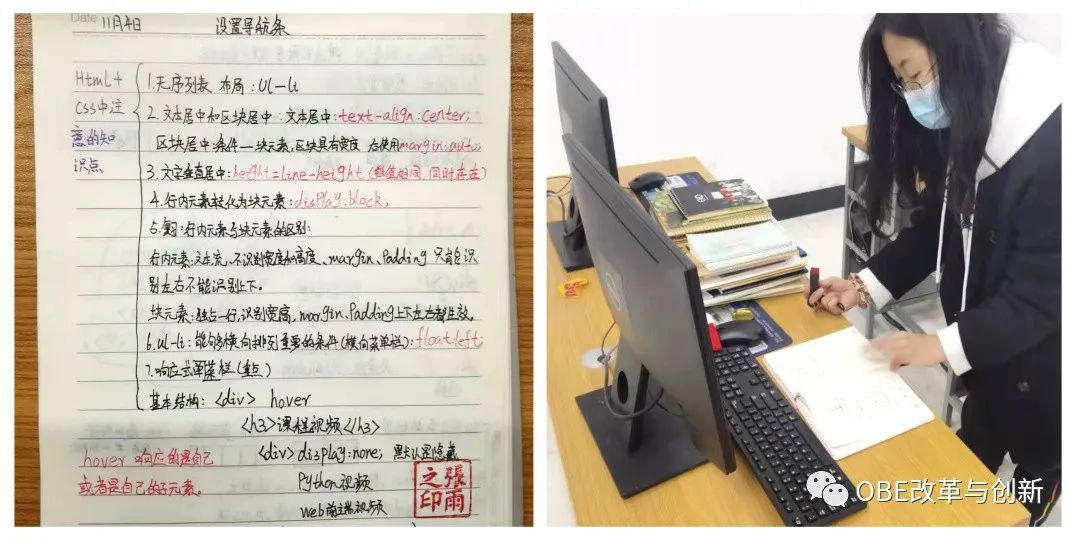 Date 11月4日 设置导航条
Html+
CSS中注
意的知
识点
1.无序列表 布局:Ul-li
2.文本居中和区块居中 文本居中:text-align:center;
区块居中:条件—块元素,区块具有宽度 右使用margin:auto;
3.文字垂直居中:height=line-height(数值相同,同时存在)
4.行内元素转化为块元素:display:block,
5.复习:行内元素与块元素的区别:
行内元素:文本流,不识别宽度和高度、margin、Padding 只能识
别左右不能识别上下。
块元素:独占一行,识别宽高,margin、Padding上下左右都生效。
6.ul-li:能够横向排列重要的条件(横向菜单栏):float:left;
7.响应式菜单栏(重点)
基本结构:<div> hover
<h3>课程视频</h3>
<div>display:none; 默认是隐藏
Python视频
web前端视频
hover 响应的是自己
或者是自己的子元素。
張雨
之印
OBE改革与创新